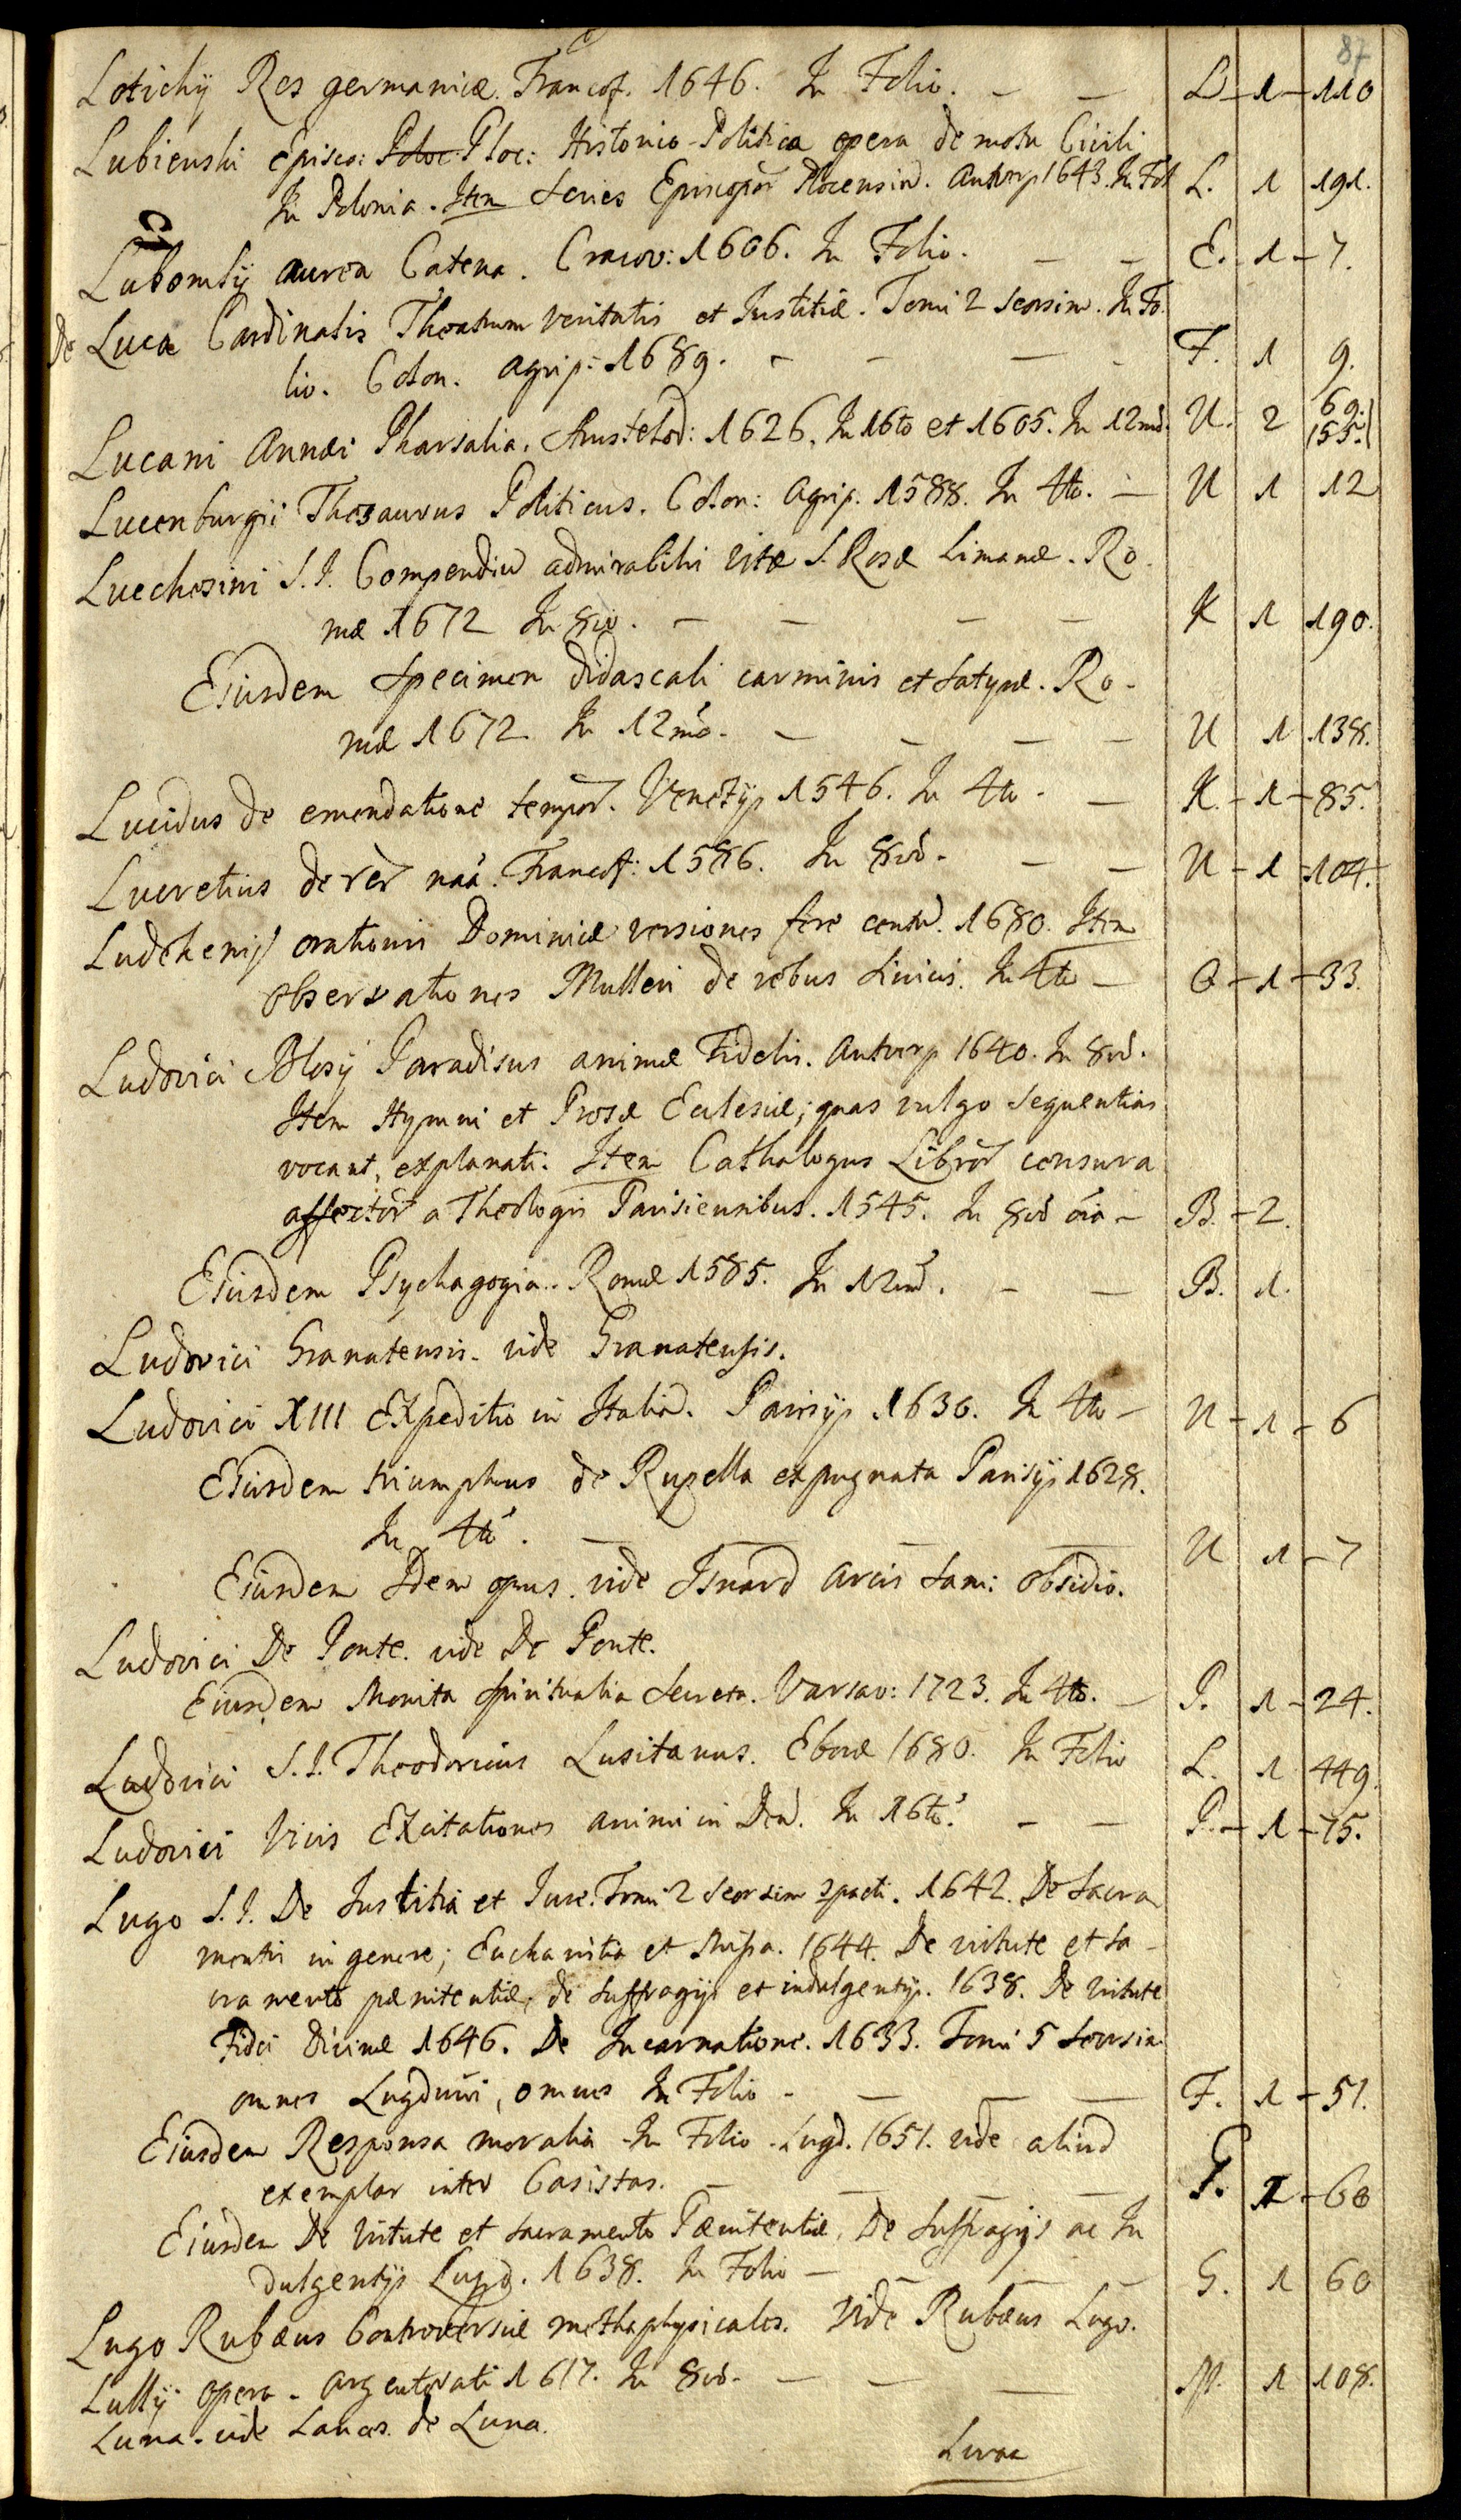 87
Lotichij Res germaniæ. Francof. 1646. In Folio. — — L — 1 — 110
Lubienski Episco: Ploc: Historico-Politica opera de motu Civili
In Polonia. Item Series Episcopor Plocensiu. Antverp 1643. In Fol L. 1 191.
Lubomlij aurea Catena. Cracov: 1606. In Folio. — — E. 1 — 7.
De Luca Cardinalis Theatrum veritatis et Justitiæ. Tomi 2 seorsim. In Fo.
lio. Colon. Agrip: 1689. — — — — F. 1 9.
Lucani Annæi Pharsalia. Amstelod: 1626. In 16to et 1605. In 12mo. U. 2 69. 155.
Lucenburgii Thesaurus Politicus. Colon: Agrip. 1588. In 4to. — U 1 12
Lucchesini S.J. Compendiu admirabilis vitæ S. Rosæ Limanæ. Ro-
mæ 1672 In 8vo. — — — — K 1 190.
Eiusdem Specimen didascali carminis et Satyræ. Ro-
mæ 1672. In 12mo. — — — — U 1 138.
Lucidus de emendatione tempor. Venetijs 1546. In 4to. — K. — 1 — 85.
Lucretius de rer naa. Francof: 1586. In 8vo. — — U — 1 — 104.
Ludekenij orationis Dominicæ versiones fere centu. 1680. Item
Observationes Mulleri de rebus Sinicis. In 4to — O — 1 — 33.
Ludovici Blosij Paradisus animæ Fidelis. Antverp 1640. In 8vo.
Item Hymni et Prosæ Eclesiæ; quas vulgo Sequentias
vocant, explanati. Item Cathalogus Libror censura
affector a Theologis Parisiensibus. 1545. In 8vo oia — B. — 2.
Eiusdem Psychagogia. Romæ 1585. In 12mo. — — B. 1.
Ludovici Granatensis. vide Granatensis.
Ludovici XIII Expeditio in Italia. Parisijs 1630. In 4to — U — 1 — 6
Eiusdem triumphus de Rupella expugnata Parisijs 1628.
In 4to. — — — U 1 — 7
Eiusdem Idem opus. vide Isnard Arcis Sam: obsidio.
Ludovici De Ponte. vide De Ponte.
Eiusdem Monita Spiritualia Secreta. Varsav: 1723. In 4to. — P. 1 — 24.
Ludovici S.J. Theodoricus Lusitanus. Eboræ 1680. In Folio L. 1 449.
Ludovici Vivis Excitationes animi in Deu. In 16to. — — P. — 1 — 75.
Lugo S.J. De Justitia et Jure. Tomi 2 seorsim 2pacti. 1642. De Sacra
mentis in genere; Eucharistia et Missa. 1644. De virtute et Sa-
cramento pænitentiæ, de suffragijs et indulgentijs. 1638. De virtute
Fidei Divinæ 1646. De Incarnatione. 1633. Tomi 5 seorsim
omnes Lugduni, omnes In Folio — — — — F. 1 — 51.
Eiusdem Responsa moralia In Folio. Lugd. 1651. vide aliud
exemplar inter Casistas. — — — — G. 1 — 60
Eiusdem De Virtute et Sacramento Pænitentiæ, De Suffragijs ac In
dulgentijs Lugd. 1638. In Folio — — — G. 1 60
Lugo Rubæus Controversiæ methaphysicales. Vide Rubæus Lugo.
Lullij opera. Argentorati 1617. In 8vo. — — — M. 1 108.
Luna. vide Lances de Luna.
Lunæ